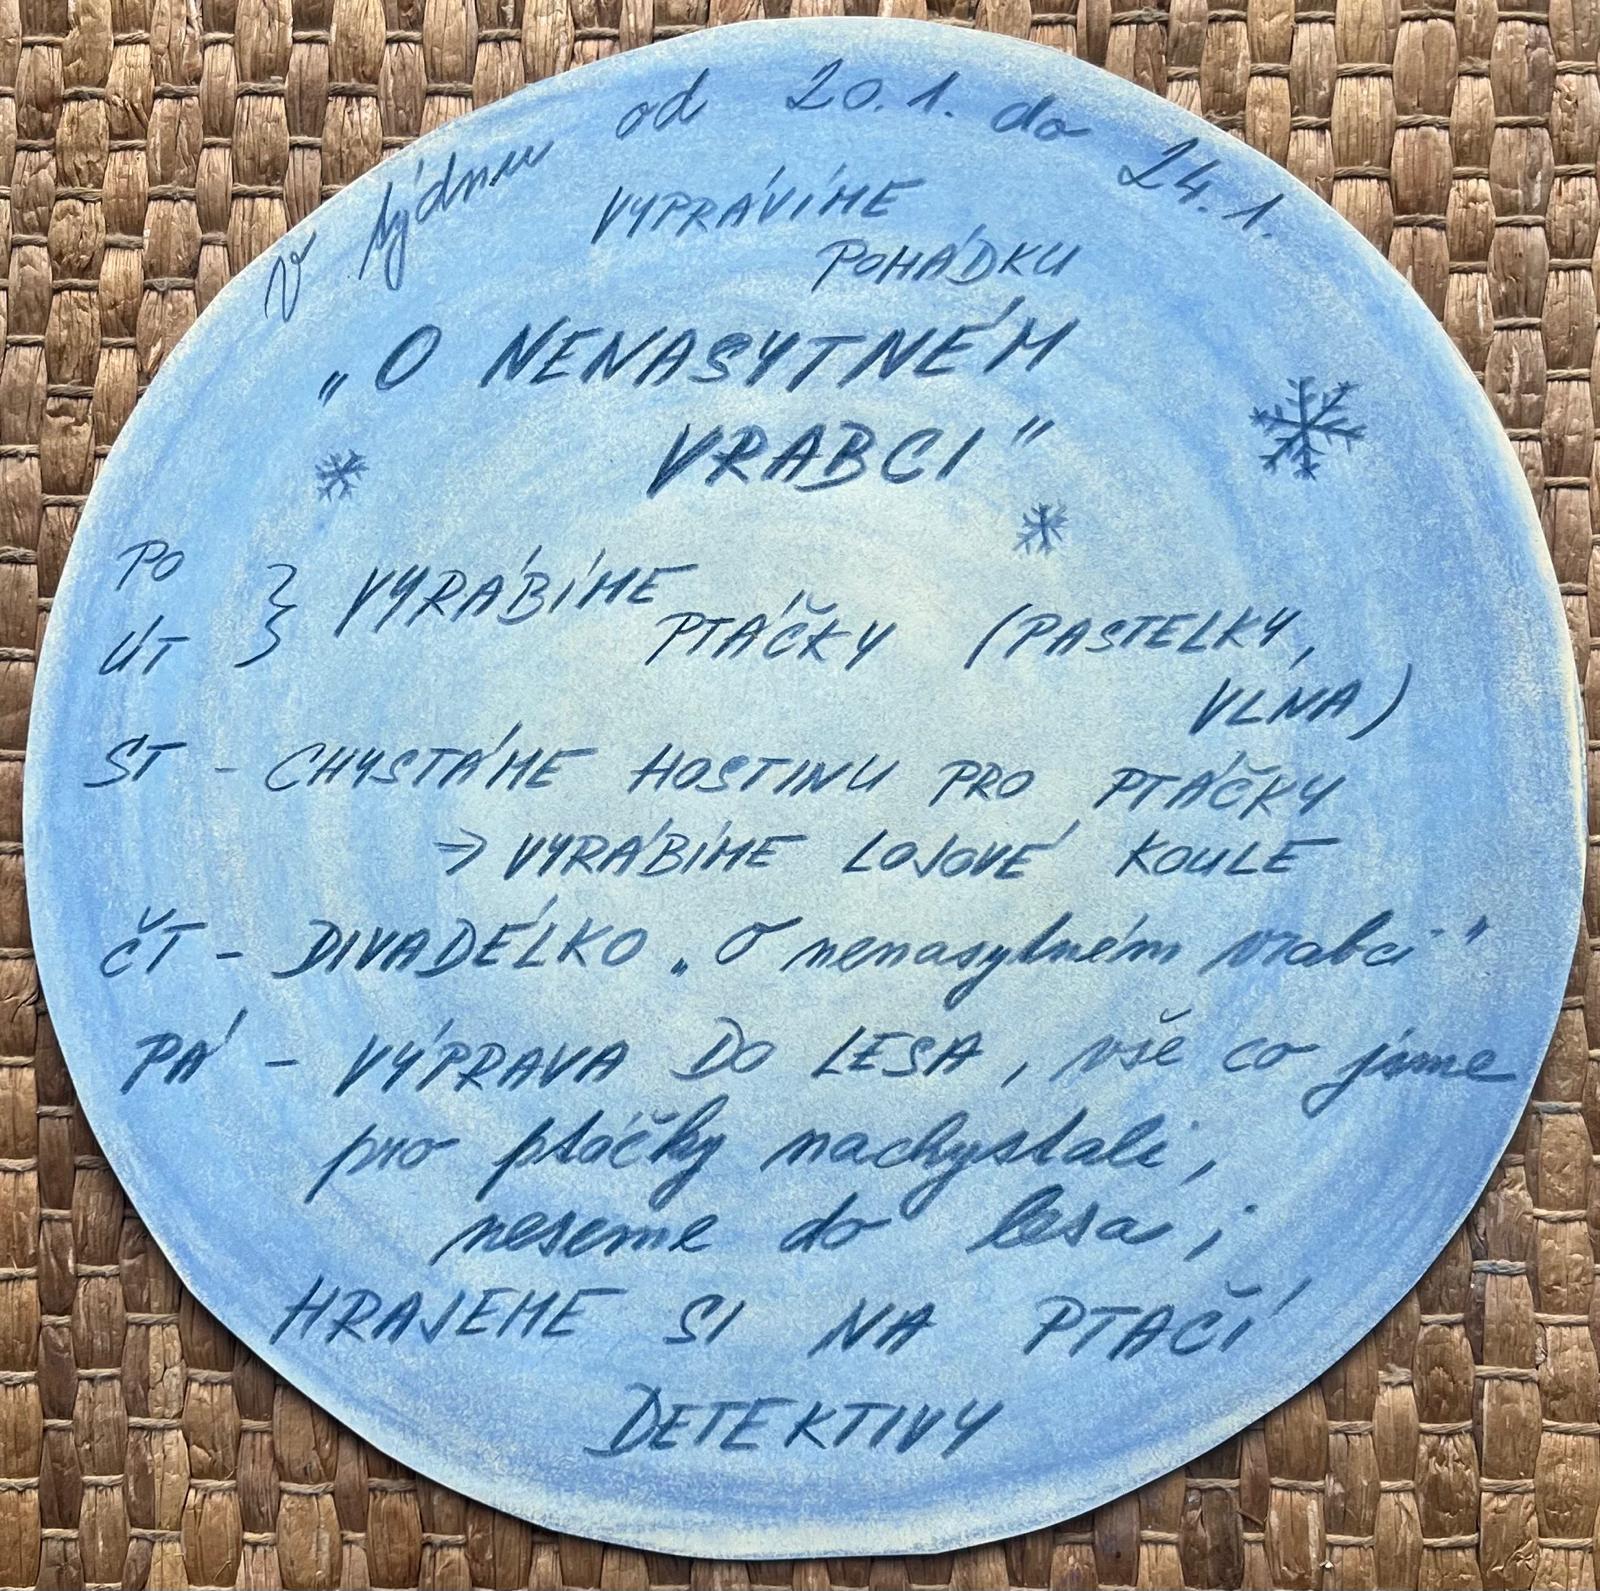 v týdnu od 20.1. do 24.1.
VYPRÁVÍME
POHÁDKU
„O NENASYTNÉM
VRABCI"
PO
ÚT } VYRÁBÍME
PTÁČKY (PASTELKY,
VLNA)
ST - CHYSTÁME HOSTINU PRO PTÁČKY
→ VYRÁBÍME LOJOVÉ KOULE
ČT - DIVADÉLKO „O nenasytném vrabci"
PÁ - VÝPRAVA DO LESA, vše co jsme
pro ptáčky nachystali,
neseme do lesa;
HRAJEME SI NA PTAČÍ
DETEKTIVY